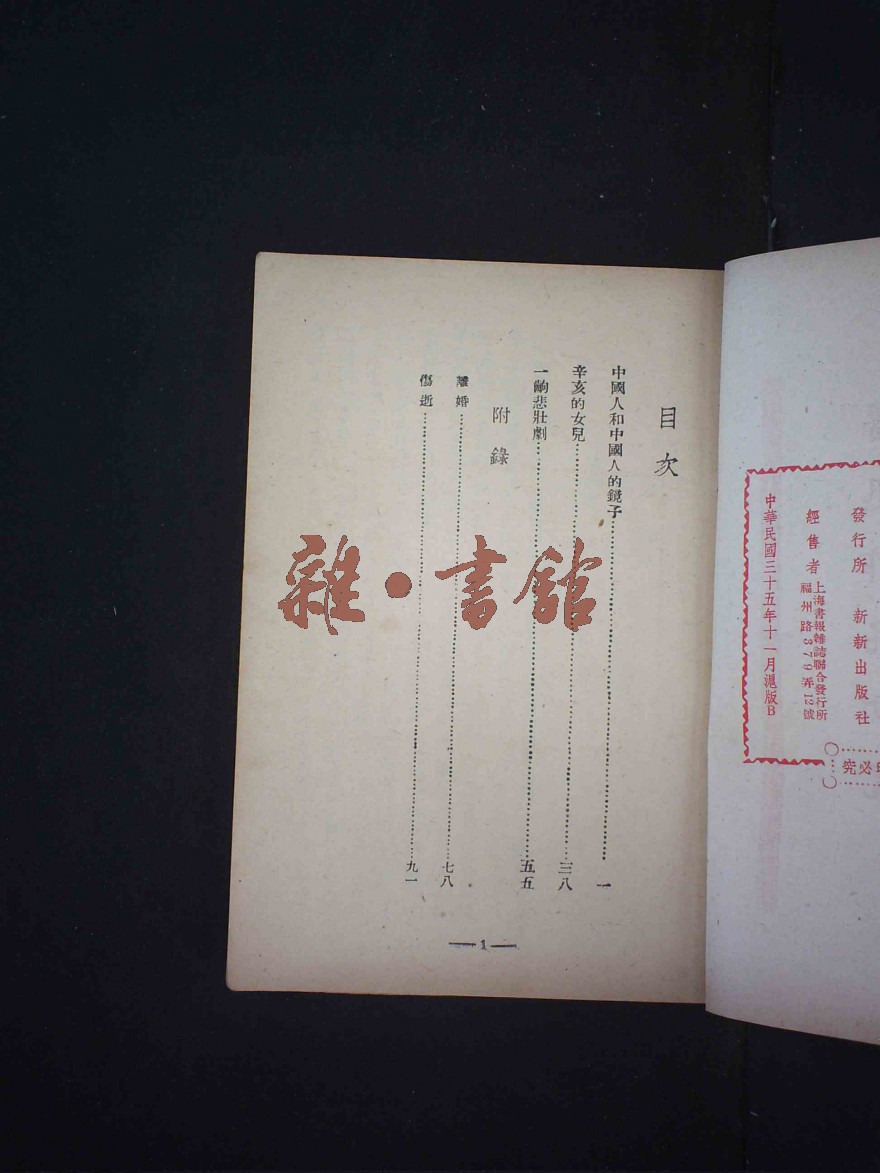 發行所　新新出版社
經售者　上海書報雜誌聯合發行所
福州路379弄12號
中華民國三十五年十一月滬版B
必究
目次
中國人和中國人的鏡子……一
辛亥的女兒……三八
一齣悲壯劇……五五
附錄
離婚……七八
傷逝……九一
—1—
雜·書館